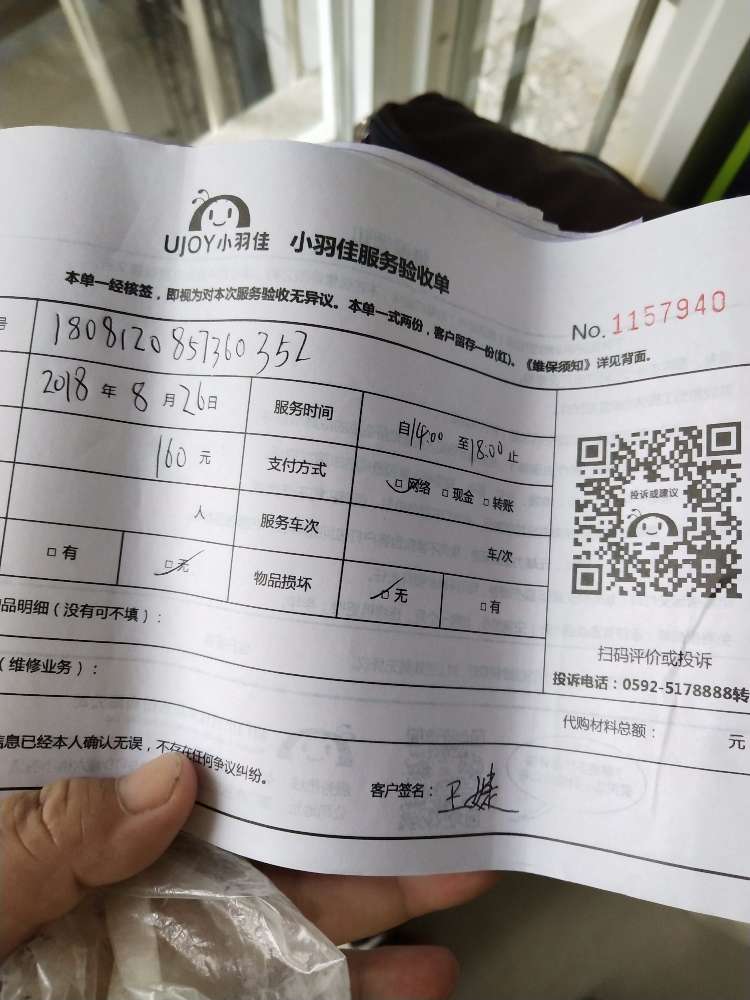 UJOY小羽佳 小羽佳服务验收单
本单一经核签，即视为对本次服务验收无异议。本单一式两份，客户留存一份(红)。《维保须知》详见背面。
No. 1157940
号 1808120857360352
2018 年 8 月 26 日 服务时间 自14:00 至18:00 止
160 元 支付方式 □网络 □现金 □转账
人 服务车次 车/次
□有 □无 物品损坏 □无 □有
投诉或建议
扫码评价或投诉
投诉电话：0592-5178888转
品明细（没有可不填）：
（维修业务）：
代购材料总额： 元
信息已经本人确认无误，不存在任何争议纠纷。
客户签名：王